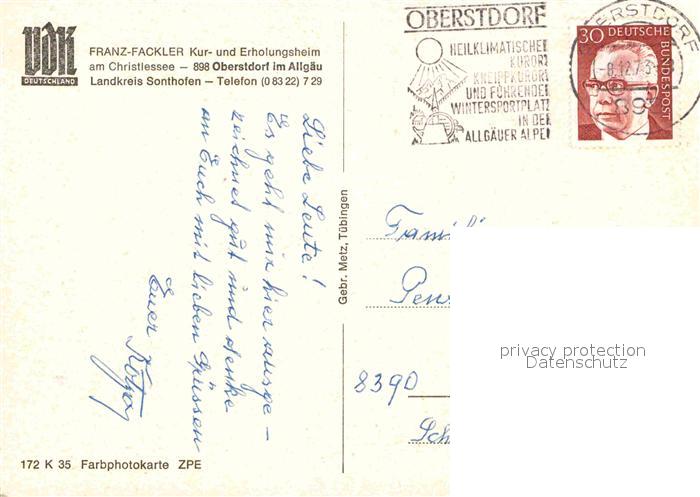 VdK
DEUTSCHLAND
FRANZ-FACKLER Kur- und Erholungsheim
am Christlessee — 898 Oberstdorf im Allgäu
Landkreis Sonthofen — Telefon (0 83 22) 7 29
OBERSTDORF
HEILKLIMATISCHER
KURORT
KNEIPPKURORT
UND FÜHRENDER
WINTERSPORTPLATZ
IN DER
ALLGÄUER ALPEN
30 DEUTSCHE
BUNDESPOST
OBERSTDORF
Liebe Leute!
Es geht mir hier ausge-
zeichnet gut und denke
an Euch mit lieben Grüssen
Euer
Gebr. Metz, Tübingen
Famili
Pen
8390
Sch
privacy protection
Datenschutz
172 K 35 Farbphotokarte ZPE